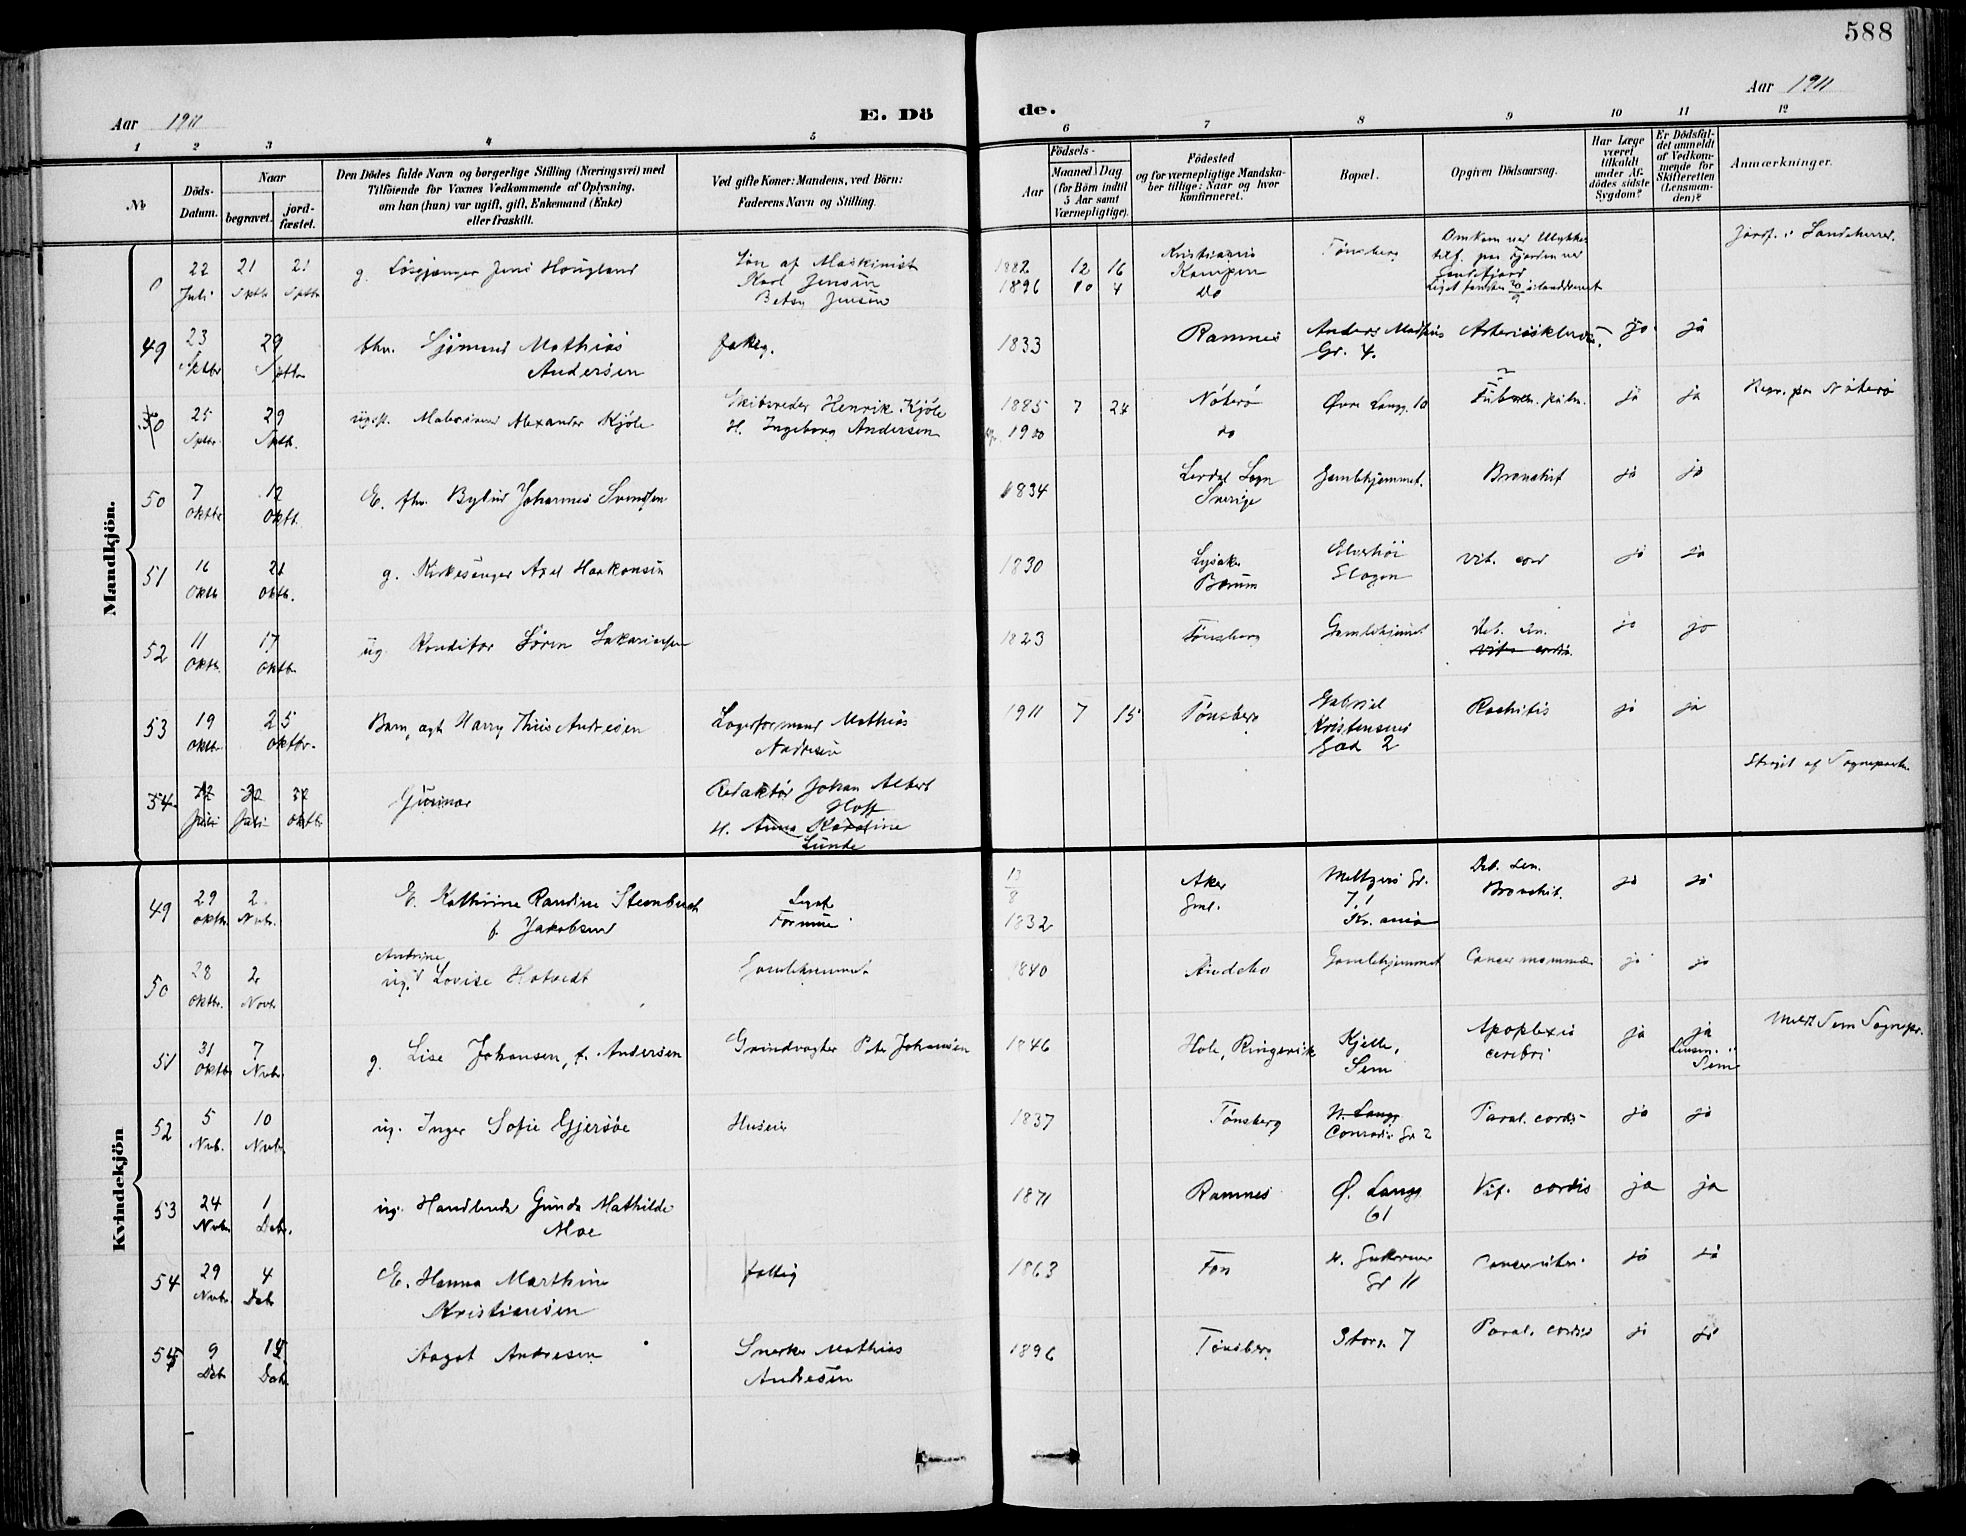 588
Aar 1911
E. Dö
de.
Aar 1911
1 2 3 4 5 6 7 8 9 10 11 12
№
Döds-Datum.
Naar
begravet.
jord-fæstet.
Den Dödes fulde Navn og borgerlige Stilling (Næringsvei) med
Tilföiende for Voxnes Vedkommende af Oplysning,
om han (hun) var ugift, gift, Enkemand (Enke)
eller fraskilt.
Ved gifte Koner: Mandens, ved Börn:
Faderens Navn og Stilling.
Födsels-
Aar
Maaned Dag
(for Börn indtil
5 Aar samt
Værnepligtige).
Födested
og for værnepligtige Mandska-
ber tillige: Naar og hvor
konfirmeret.
Bopæl.
Opgiven Dödsaarsag.
Har Læge
været
tilkaldt
under Af-
dödes sidste
Sygdom?
Er Dödsfal-
det anmeldt
af Vedkom-
mende for
Skifteretten
(Lensman-
den)?
Anmærkninger.
Mandkjön.
0 22 Juli 21 Sptb 21 Sptbr
g. Løsgjænger Jens Hougland
Søn af Maskinist
Karl Jensen
Betsy Jensen
1882 12 16
1896 10 4
Kristiania
Kampen
Do
Tønsberg
Omkom ved Ulykkes
tilf. paa Fjorden ved
Sandefjord
Jordf. i Sandeherred.
49 23 Sptbr 29 Sptbr
fhv. Sjømand Mathias
Andersen
fattig.
1833
Ramnes
Anders Madsens
Gr. 4.
ja ja
50 25 Sptbr 29 Sptb.
ugift. Alexander Kjøle
Skibsreder Henrik Kjøle
H. Ingeborg Andersen
1885 7 24
1900
Nøterø
do
Øvre Langg. 10
ja ja
Begr. paa Nøterø
50 7 Oktbr 12 Oktb.
E. fhv. Bybud Johannes Svendsen
1834
Sverige
Gamlehjemmet.
Bronchit
ja ja
51 16 Oktb 21 Oktb.
g. Kirkesanger Axel Haakonsen
1830
Lysaker
Bærum
Slagen
Vit. cord
ja ja
52 11 Oktb. 17 Oktb
ug. Konditor Søren Sakariassen
1823
Tønsberg
Gamlehjemmet
Deb. sen.
Vitu cordis.
ja ja
53 19 Oktbr 25 Oktbr.
Barn, ægt Harry Thiis Andresen
Lagerformand Mathias
Andresen
1911 7 15
Tønsberg
Gabriel
Kristensens
Gad 2
Rachitis
ja ja
54 Juli 30 Juli Oktbr
Gunnar
Redaktør Johan Albert
Hoff
H. Anna Karoline
Lunde
Strøget af Sognepræsten.
Kvindekjön
49 29 Oktbr. 2 Nvbr.
E. Kathrine Randine Steenbuch
f. Jakobsen
Formue
13/8
1832
Aker
Meltzers Gd.
7.1
Kr.ania
Deb. sen.
Bronchit.
ja ja
50 28 Oktbr. 2 Novbr
Andrine
ug. Lovise Hotvedt
Gamlehjemmet
1840
Andebo
Gamlehjemmet
Cancer mammæ
ja ja
51 31 Oktb 7 Nvbr.
g. Lise Johansen, f. Andersen
Grindvogter Peter Johansen
1846
Hole, Ringerike
Kjelle,
Sem
Apoplexia
cerebri
ja ja
Lensm. i
Sem
Meldt Sem Sognepr.
52 5 Nvb. 10 Nvbr.
ug. Inger Sofie Gjersøe
Huseier
1837
Tønsberg
N. Langg
Conradis Gd 2
Paral. cordis
ja ja
53 24 Nvbr 1 Debr.
ug. Handlende Gunda Mathilde
Moe
1871
Ramnes
Ø. Langg
61
Vit. cordis
ja ja
54 29 Nvbr. 4 Deb
E. Hanna Marthine
Kristiansen
fattig
1863
Fon
Gd 11
Cancer uteri.
ja ja
55 9 Deb 15 Debr
Aagot Andresen
Snerker Mathias
Andresen
1896
Tønsberg
Storg. 7
Paral. cordis
ja ja